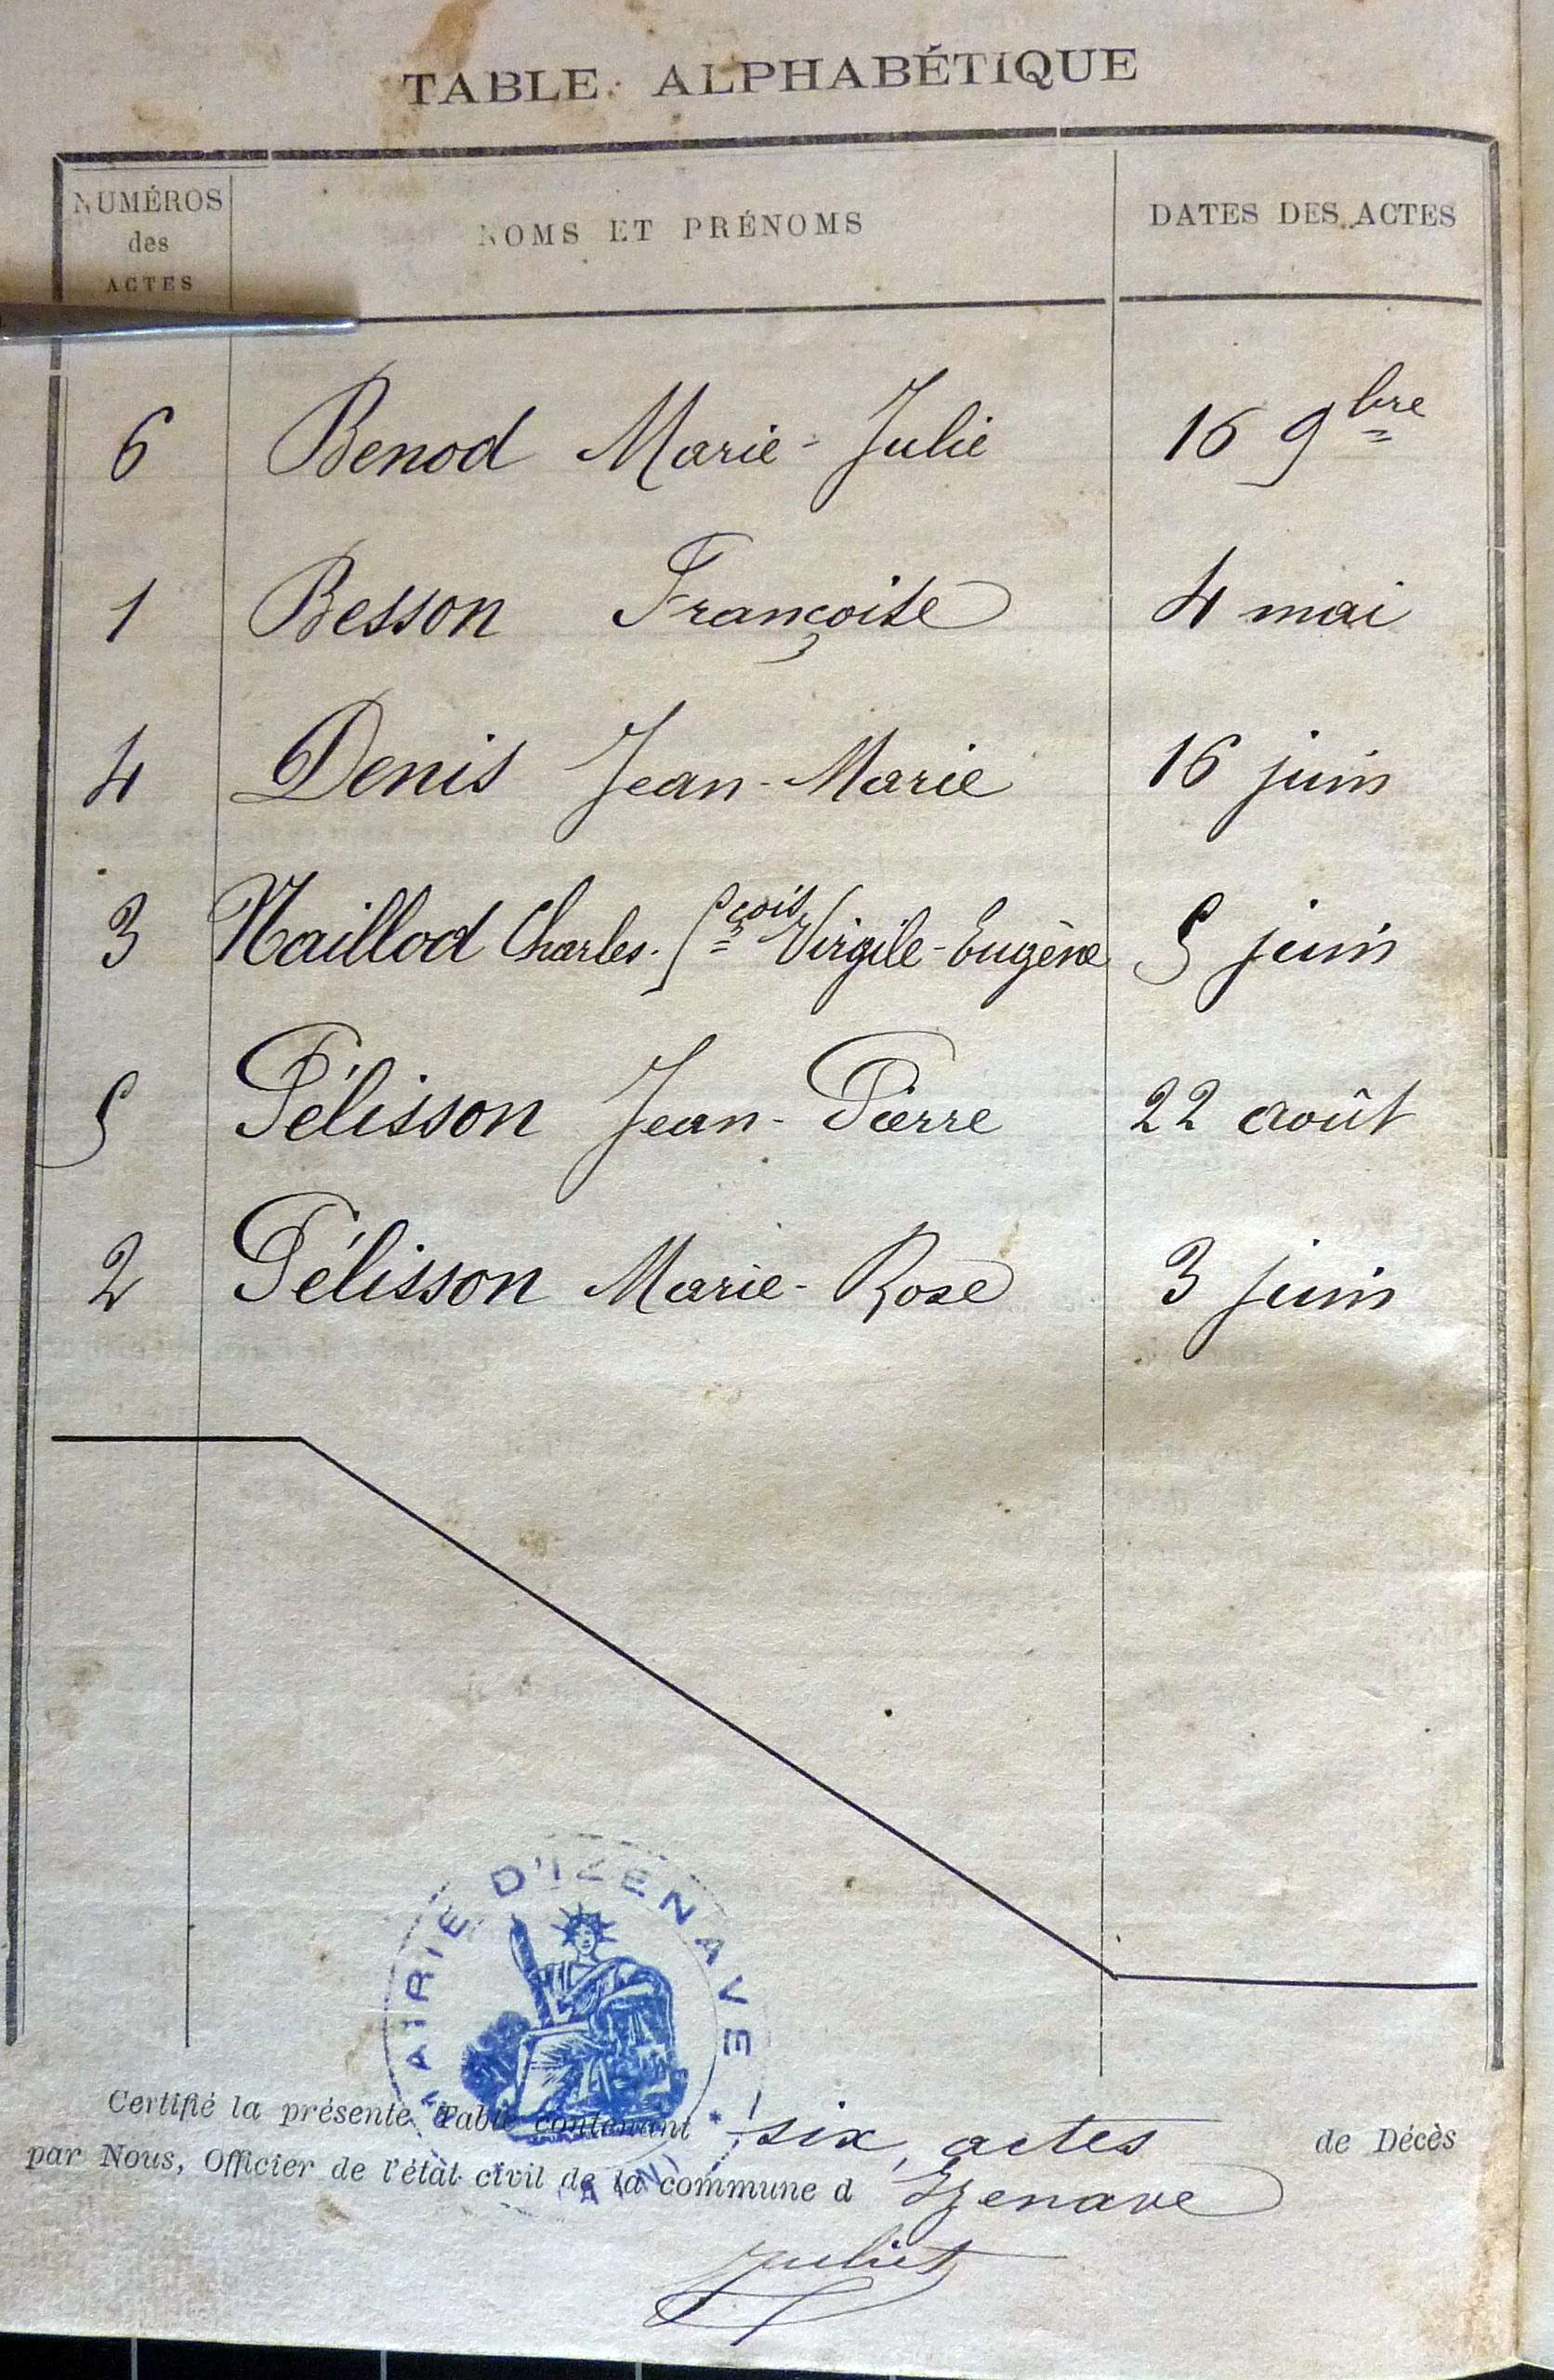 TABLE ALPHABÉTIQUE
NUMÉROS des ACTES NOMS ET PRÉNOMS DATES DES ACTES
6 Benod Marie-Julie 16 9bre
1 Besson Françoise 4 mai
4 Denis Jean-Marie 16 juin
3 Naillod Charles-fçois Virgile-Eugène 5 juin
5 Pélisson Jean-Pierre 22 août
2 Pélisson Marie-Rose 3 juin
MAIRIE D'IZENAVE
(AIN)
Certifié la présente Table contenant six actes de Décès
par Nous, Officier de l'état civil de la commune d'Izenave
Juliet